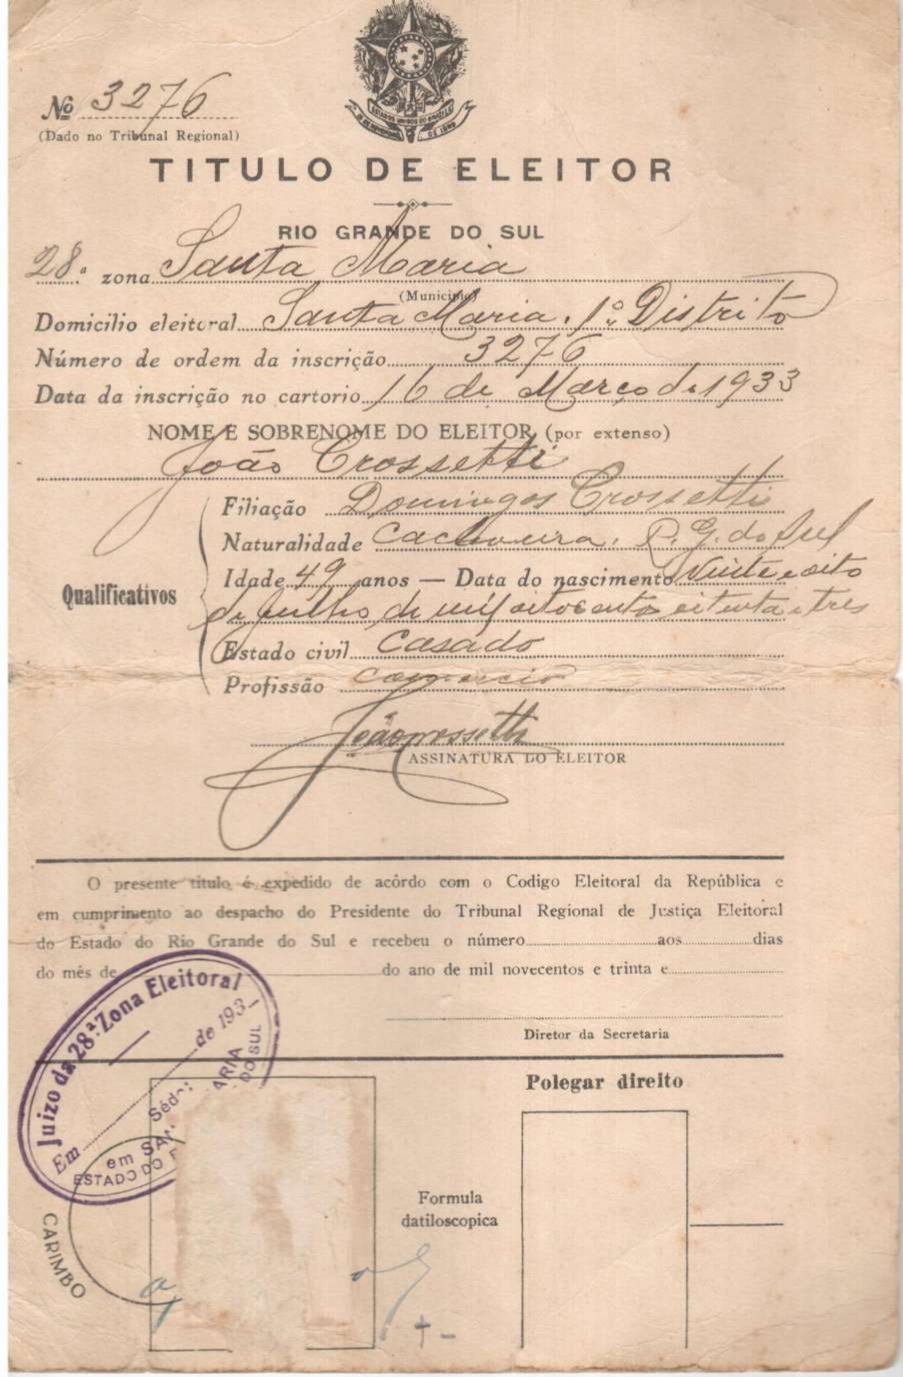 Nº 3276
(Dado no Tribunal Regional)
TITULO DE ELEITOR
RIO GRANDE DO SUL
28.ª zona Santa Maria
(Municipio)
Domicilio eleitoral Santa Maria. 1º Distrito
Número de ordem da inscrição 3276
Data da inscrição no cartorio 16 de Março de 1933
NOME E SOBRENOME DO ELEITOR (por extenso)
João Crossetti
Qualificativos
Filiação Domingos Crossetti
Naturalidade Cachoeira. R. G. do Sul
Idade 49 anos — Data do nascimento Vinte e oito
de Julho de mil oitocentos oitenta e tres
Estado civil Casado
Profissão Comercio
João Crossetti
ASSINATURA DO ELEITOR
O presente titulo é expedido de acôrdo com o Codigo Eleitoral da República e
em cumprimento ao despacho do Presidente do Tribunal Regional de Justiça Eleitoral
do Estado do Rio Grande do Sul e recebeu o número aos dias
do mês de do ano de mil novecentos e trinta e
Diretor da Secretaria
Juizo da 28ª. Zona Eleitoral
Em de 193
Séde:
em SA ARIA
ESTADO DO DO SUL
CARIMBO
Formula
datiloscopica
Polegar direito